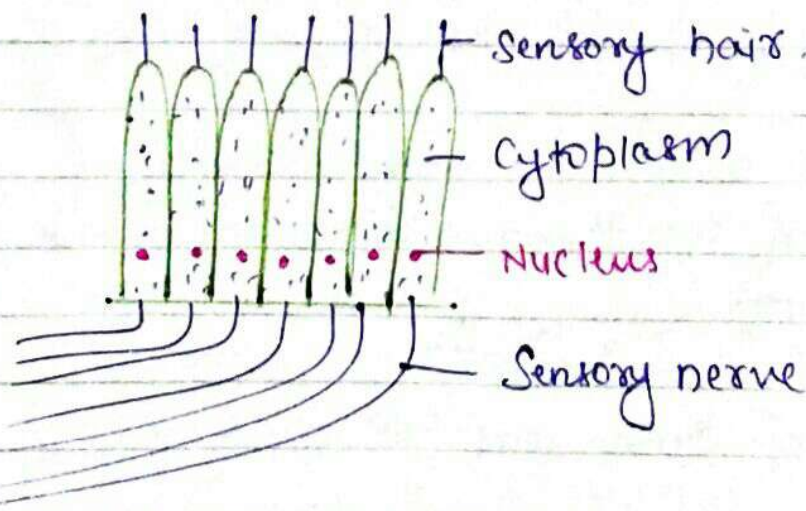 Sensory hair.
Cytoplasm
Nucleus
Sensory nerve